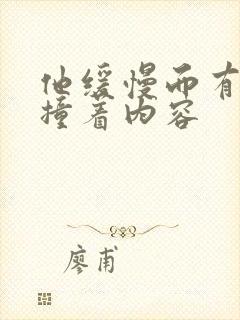 他缓慢而有
撞着内容
廖甫